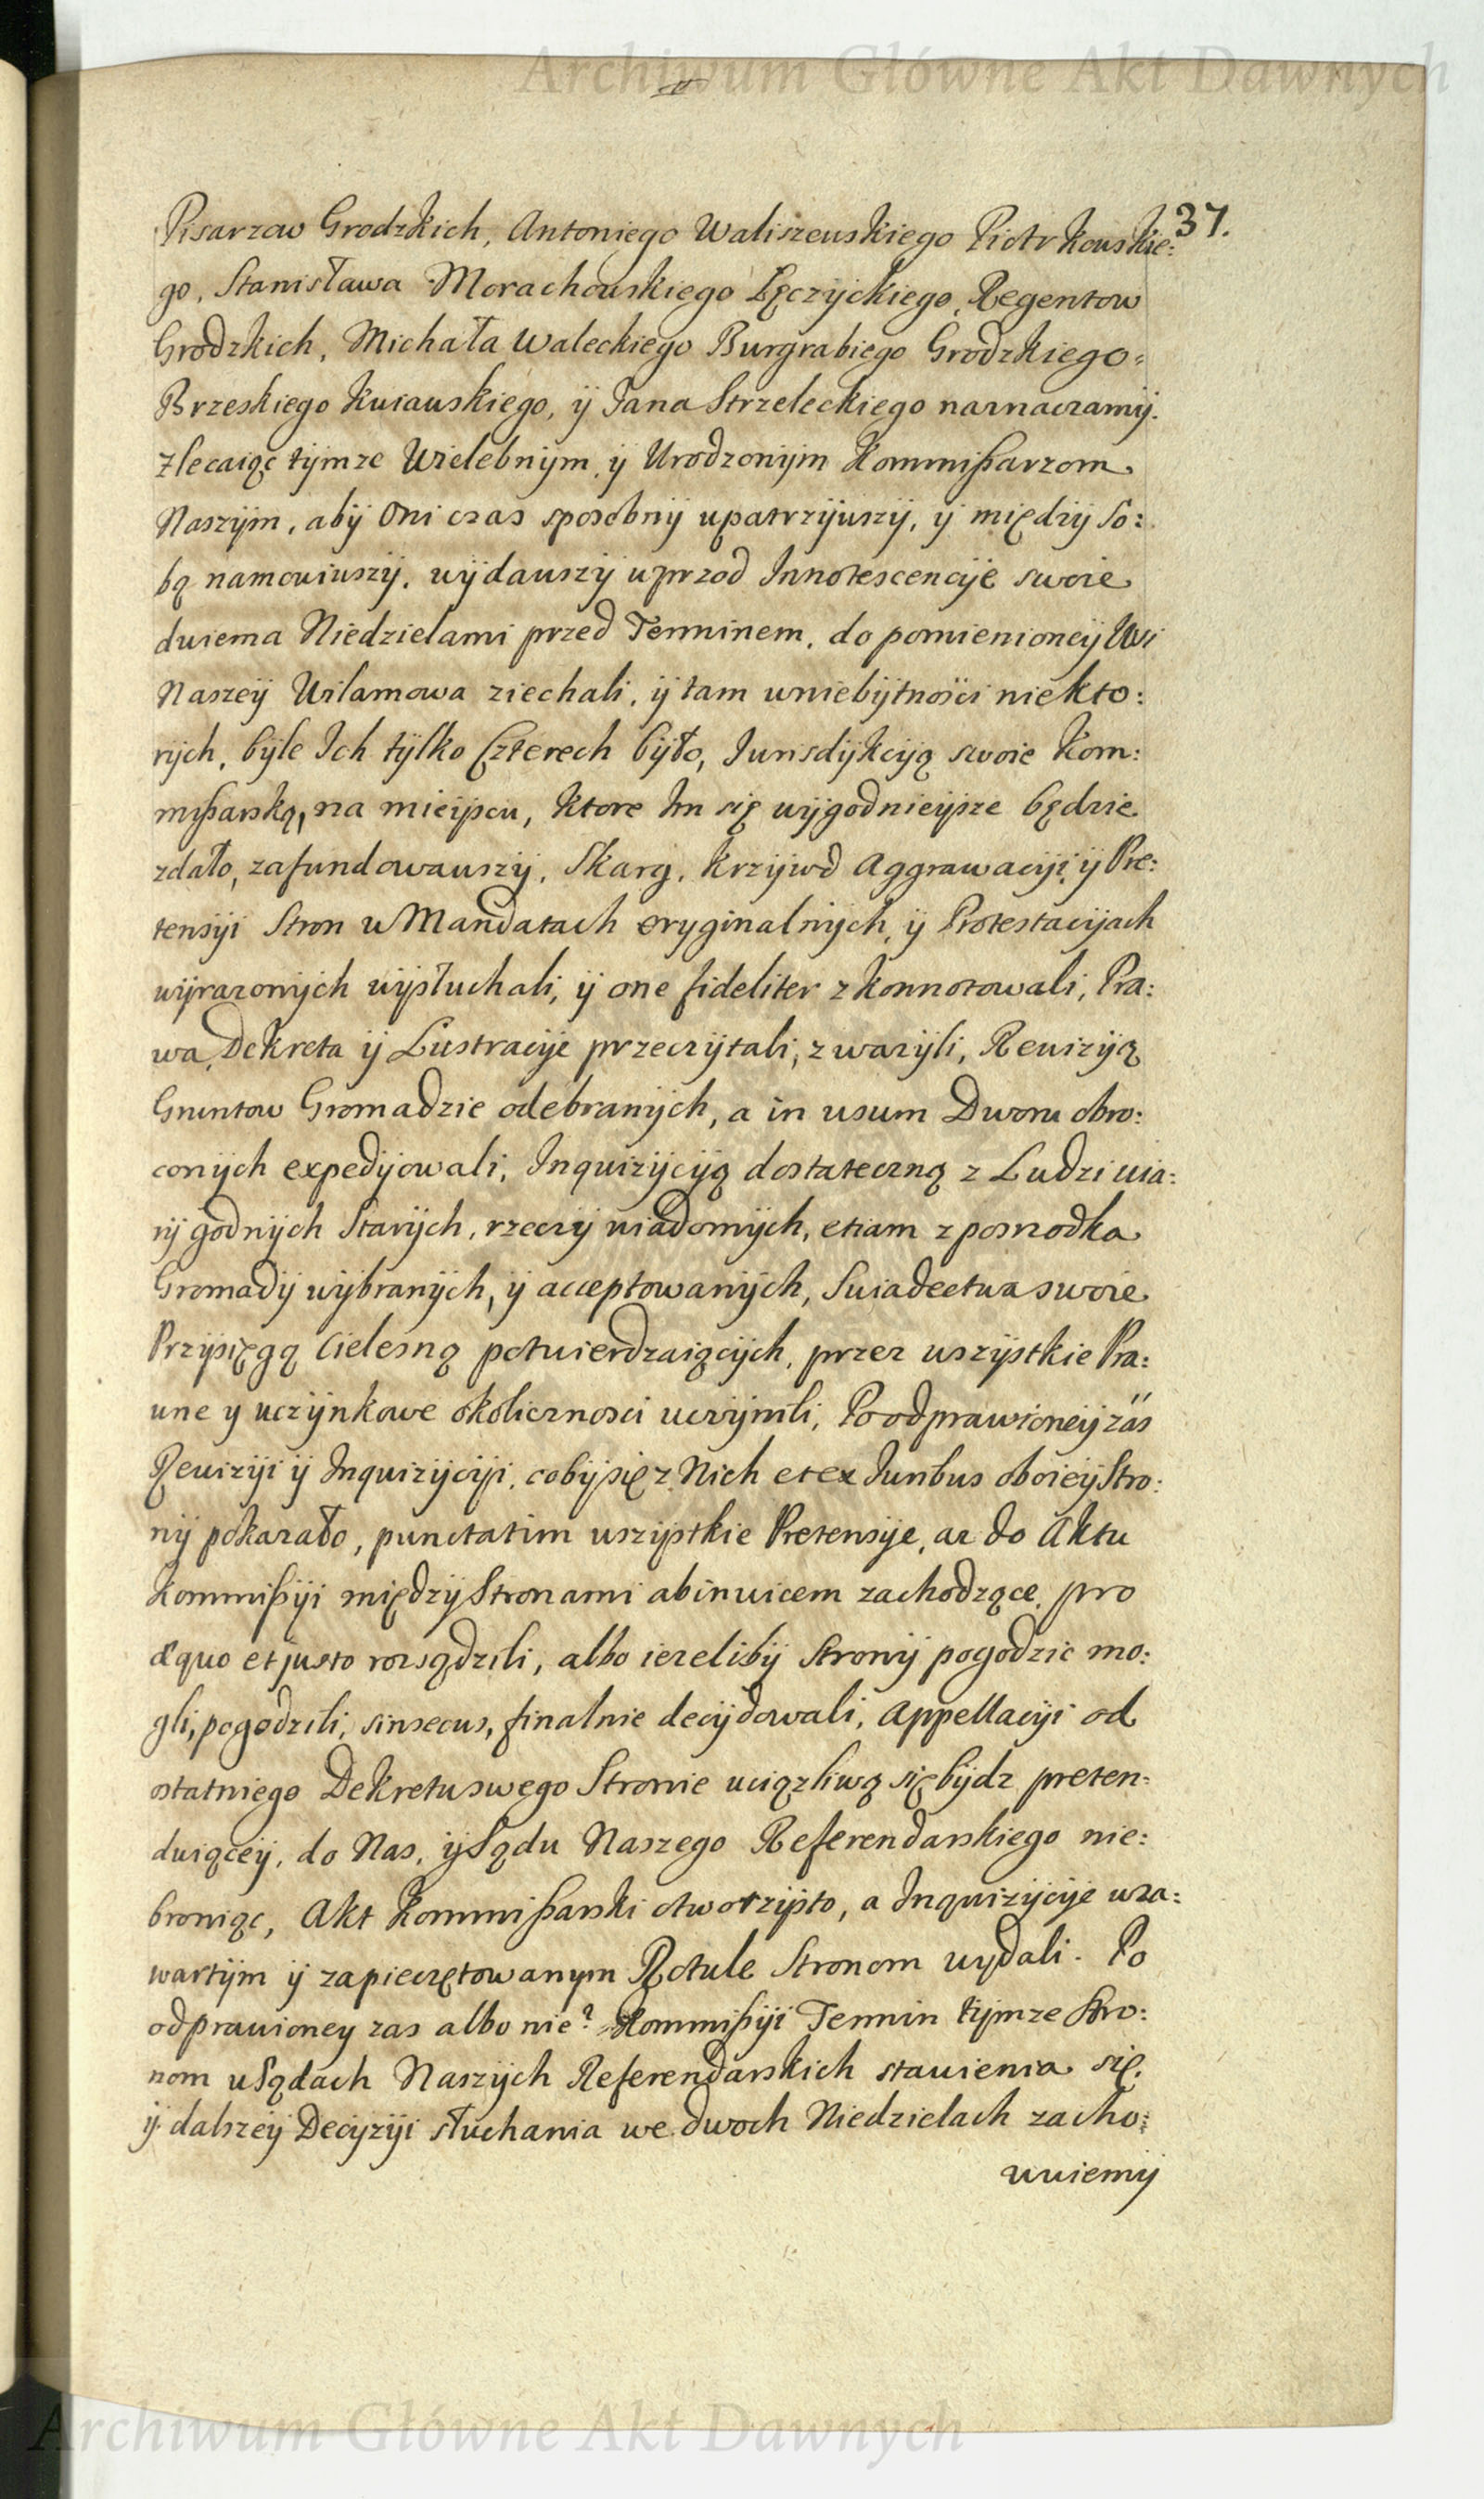 Archiwum Główne Akt Dawnych
37.
Pisarzow Grodzkich, Antoniego Waliszewskiego Piotrkowskie:
go, Stanisława Morachowskiego Łęczyckiego, Regentow
Grodzkich, Michała Waleckiego Burgrabiego Grodzkiego
Brzeskiego Kuiawskiego, ÿ Jana Strzeleckiego naznaczamÿ.
zlecaiąc tÿmze Wielebnÿm, ÿ Urodzonÿm Kommißarzom
Naszÿm, abÿ Oni czas sposobnÿ upatrzÿwszÿ, ÿ międzÿ So:
bą namowiwszÿ, wÿdawszÿ wprzod Innotescencÿe swoie
dwiema Niedzielami przed Terminem, do pomienioneÿ Wsi
Naszeÿ Wilamowa ziechali, ÿ tam wniebÿtności niekto:
rÿch, bÿle Ich tÿlko Czterech bÿło, Jurisdÿkcÿą swoie Kom:
mißarską, na mieÿscu, ktore Im się wÿgodnieÿsze będzie
zdało, zafundowawszÿ, Skarg, krzÿwd Aggrawacÿi, ÿ Pre:
tensÿi Stron w Mandatach orÿginalnÿch, ÿ Protestacÿach
wÿrazonÿch wÿsłuchali, ÿ one fideliter zkonnotowali, Pra:
wa, Dekreta ÿ Lustracÿe przeczÿtali, zwazÿli, Rewizÿą
Gruntow Gromadzie odebranÿch, a in usum Dworu obro:
conÿch expedÿowali, Inquizÿcÿą dostateczną z Ludzi wia:
rÿ godnÿch Starÿch, rzeczÿ wiadomÿch, etiam z posrodka
Gromadÿ wÿbranÿch, ÿ acceptowanÿch, Swiadectwa swoie
Przÿsięgą Cielesną potwierdzaiącÿch, przez wszÿstkie Pra:
wne y uczÿnkowe okolicznosci uczÿnili, Po odprawioneÿ zás
Rewizÿi ÿ Inquizÿcÿi, cobÿ się z Nich et ex Juribus oboieÿ Stro:
nÿ pokazało, punctatim wszÿstkie Pretensÿe, az do Aktu
Kommißÿi międzÿ Stronami abinvicem zachodzące, pro
æquo et justo rozsądzili, albo iezelibÿ Stronÿ pogodzic mo:
gli, pogodzili, sinsecus, finalnie decÿdowali, Appellacÿi od
ostatniego Dekretu swego Stronie uciązliwą się bÿdz preten:
duiąceÿ, do Nas, ÿ Sądu Naszego Referendarskiego nie:
broniąc, Akt Kommißarski otworzÿsto, a Inquizÿcÿe wza:
wartÿm ÿ zapieczętowanym Rotule Stronom wydali. Po
odprawioney zas albo nie? Kommißÿi Termin tÿmze Stro:
nom wSądach Naszÿch Referendarskich stawienia się,
ÿ dalszeÿ Decÿzÿi słuchania we dwoch Niedzielach zacho:
wuiemÿ
Archiwum Główne Akt Dawnych